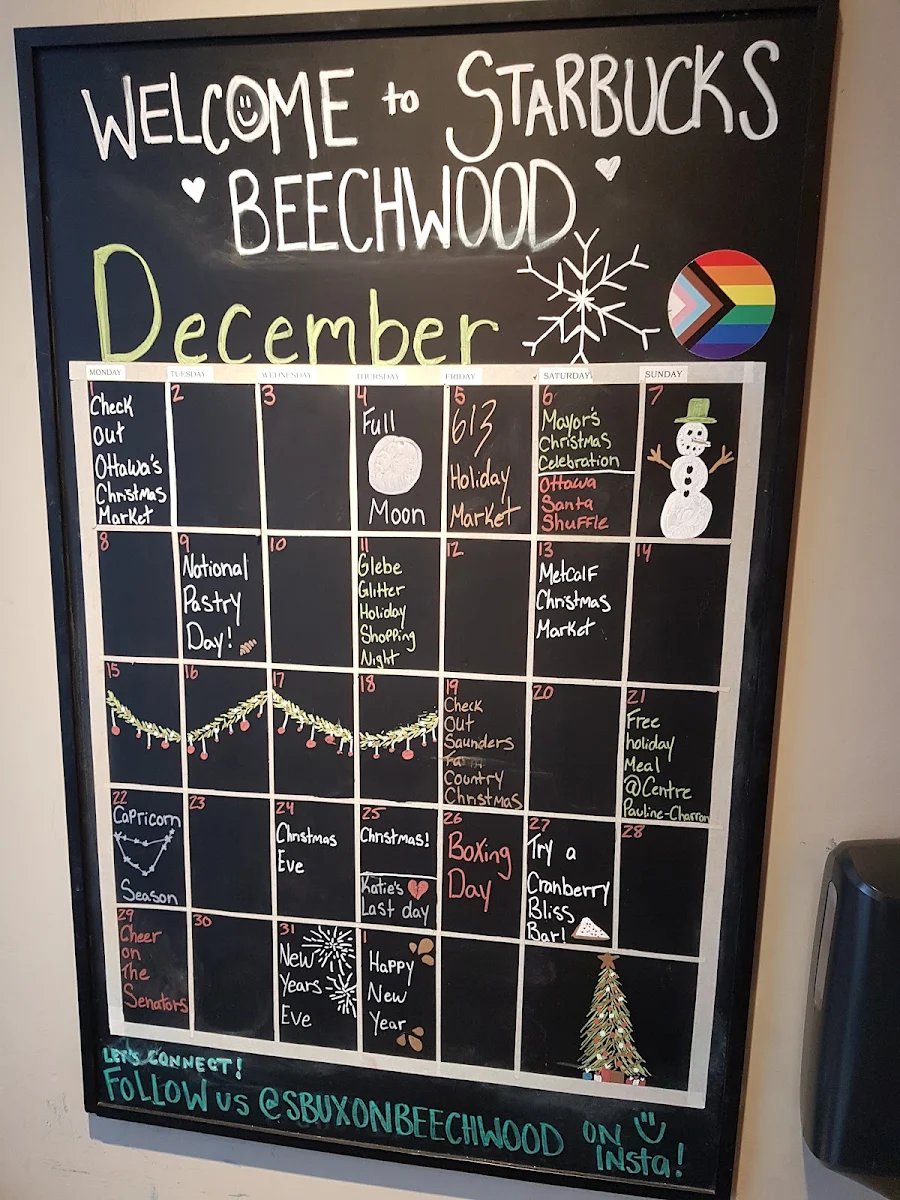 WELCOME to STARBUCKS
BEECHWOOD
December
MONDAY TUESDAY WEDNESDAY THURSDAY FRIDAY SATURDAY SUNDAY
1
Check
Out
Ottawa's
Christmas
Market
2
3
4
Full
Moon
5
613
Holiday
Market
6
Mayor's
Christmas
Celebration
Ottawa
Santa
Shuffle
7
8
9
National
Pastry
Day!
10
11
Glebe
Glitter
Holiday
Shopping
Night
12
13
Metcalf
Christmas
Market
14
15
16
17
18
19
Check
Out
Saunders
Country
Christmas
20
21
Free
holiday
Meal
@Centre
Pauline-Charron
22
Capricorn
Season
23
24
Christmas
Eve
25
Christmas!
Katie's
Last day
26
Boxing
Day
27
Try a
Cranberry
Bliss
Bar!
28
29
Cheer
on
The
Senators
30
31
New
Years
Eve
1
Happy
New
Year
LET'S CONNECT!
FOLLOW us @SBUXONBEECHWOOD ON
INsta!